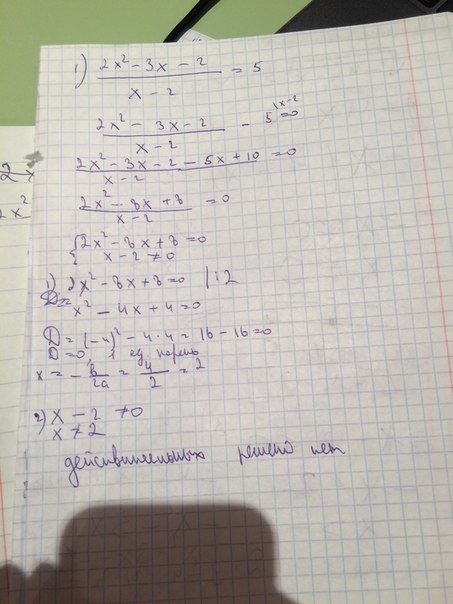 1) (2x² - 3x - 2) / (x - 2) = 5
(2x² - 3x - 2) / (x - 2) - 5 \x-2 = 0
(2x² - 3x - 2 - 5x + 10) / (x - 2) = 0
(2x² - 8x + 8) / (x - 2) = 0
{ 2x² - 8x + 8 = 0
x - 2 ≠ 0
1) 2x² - 8x + 8 = 0 | : 2
D =
x² - 4x + 4 = 0
D = (-4)² - 4 · 4 = 16 - 16 = 0
D = 0, 1 ед. корень
x = - b/2a = 4/2 = 2
2) x - 2 ≠ 0
x ≠ 2
действительных решений нет
2x
2x²